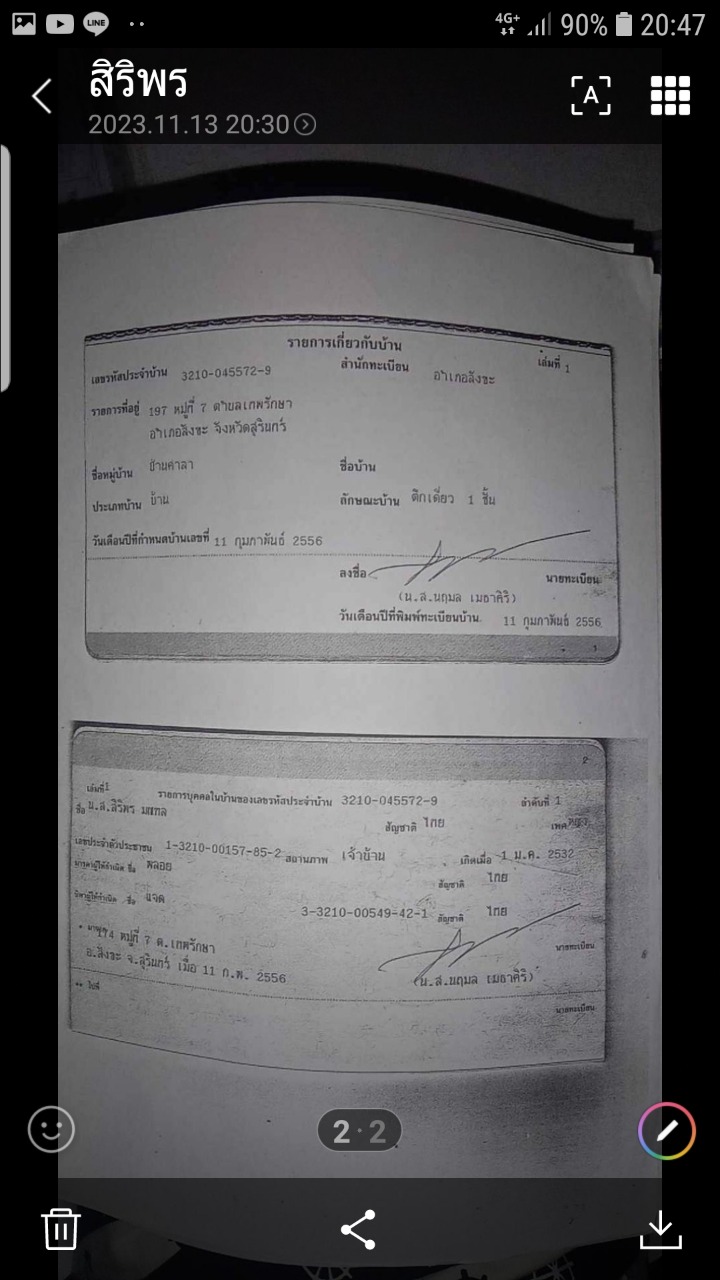 LINE
4G+ 90% 20:47
สิริพร
2023.11.13 20:30
A
รายการเกี่ยวกับบ้าน
เล่มที่ 1
เลขรหัสประจำบ้าน 3210-045572-9 สำนักทะเบียน อำเภอสังขะ
รายการที่อยู่ 197 หมู่ที่ 7 ตำบลเทพรักษา
อำเภอสังขะ จังหวัดสุรินทร์
ชื่อหมู่บ้าน บ้านศาลา ชื่อบ้าน
ประเภทบ้าน บ้าน ลักษณะบ้าน ตึกเดี่ยว 1 ชั้น
วันเดือนปีที่กำหนดบ้านเลขที่ 11 กุมภาพันธ์ 2556
ลงชื่อ นายทะเบียน
(น.ส.นฤมล เมธาศิริ)
วันเดือนปีที่พิมพ์ทะเบียนบ้าน 11 กุมภาพันธ์ 2556
1
2
เล่มที่ 1 รายการบุคคลในบ้านของเลขรหัสประจำบ้าน 3210-045572-9 ลำดับที่ 1
ชื่อ น.ส.สิริพร สัญชาติ ไทย เพศ
เลขประจำตัวประชาชน 1-3210-00157-85-2 สถานภาพ เจ้าบ้าน เกิดเมื่อ 1 ม.ค. 2532
มารดาผู้ให้กำเนิด ชื่อ พลอย สัญชาติ ไทย
บิดาผู้ให้กำเนิด ชื่อ 3-3210-00549-42-1 สัญชาติ ไทย
174 หมู่ที่ 7 ต.เทพรักษา นายทะเบียน
อ.สังขะ จ.สุรินทร์ เมื่อ 11 ก.พ. 2556 (น.ส.นฤมล เมธาศิริ)
** ไปที่ นายทะเบียน
2 · 2